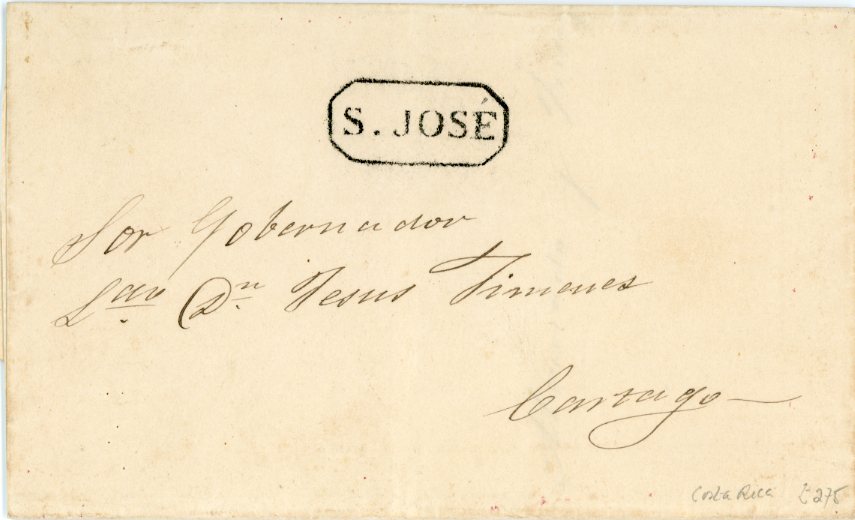 S. JOSÉ
Sor Gobernador
Dn Jesus Jimenes
Cartago
Costa Rica £275